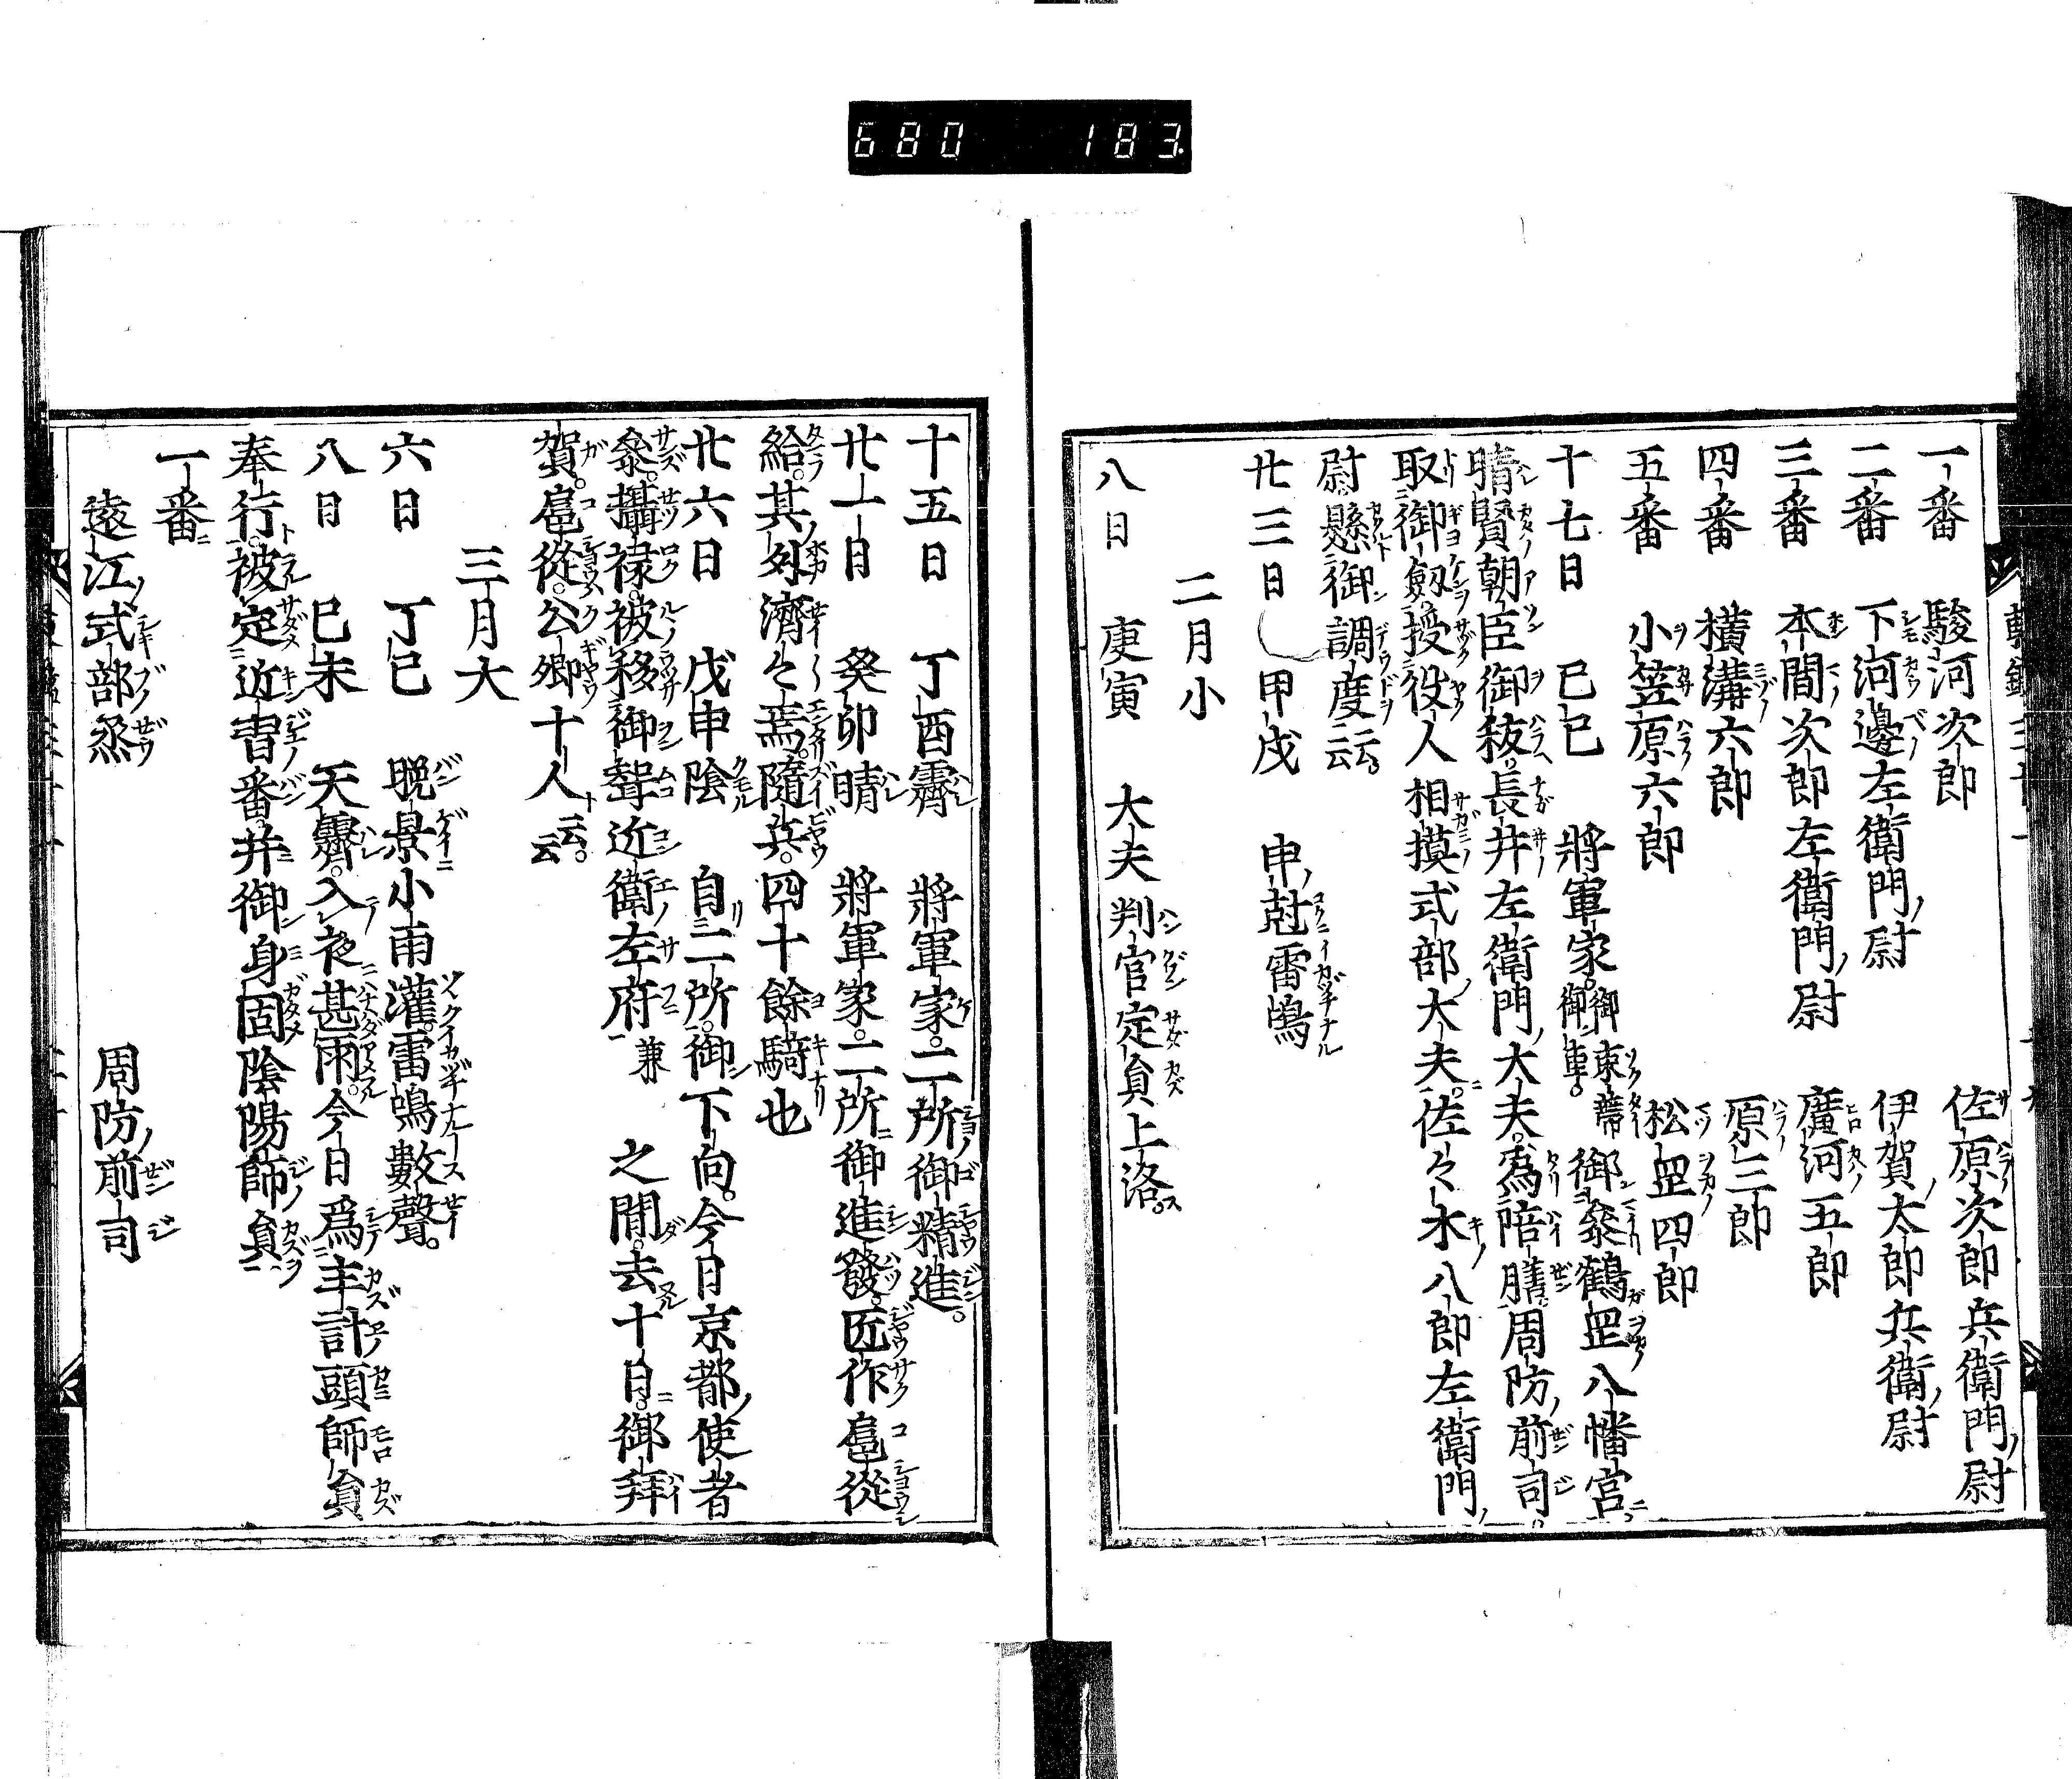 680 183
一番 駿河次郎 佐原次郎兵衛門尉
二番 下河邊左衛門尉 伊賀太郎兵衛尉
三番 本間次郎左衛門尉 廣河五郎
四番 横溝六郎 原三郎
五番 小笠原六郎 松岡四郎
十七日 己巳 將軍家御束帶御車御參鶴岡八幡宮
晴賢朝臣御秡長井左衛門大夫爲陪膳周防前司
取御劔授役人相摸式部大夫佐々木八郎左衛門
尉懸御調度云云
廿三日 甲戌 申尅雷鳴
二月小
八日 庚寅 大夫判官定員上洛
十五日 丁酉霽 將軍家二所御精進
廿一日 癸卯晴 將軍家二所御進發匠作扈從
給其外濟々焉隨兵四十餘騎也
廿六日 戊申陰 自二所御下向今日京都使者
參攝禄被移御聟近衛左府兼 之間去十日御拜
賀扈從公卿十人云云
三月大
六日 丁巳 晩景小雨灌雷鳴數聲
八日 己未 天霽入夜甚雨今日爲主計頭師員
奉行被定近習番并御身固陰陽師員
一番
遠江式部烝 周防前司